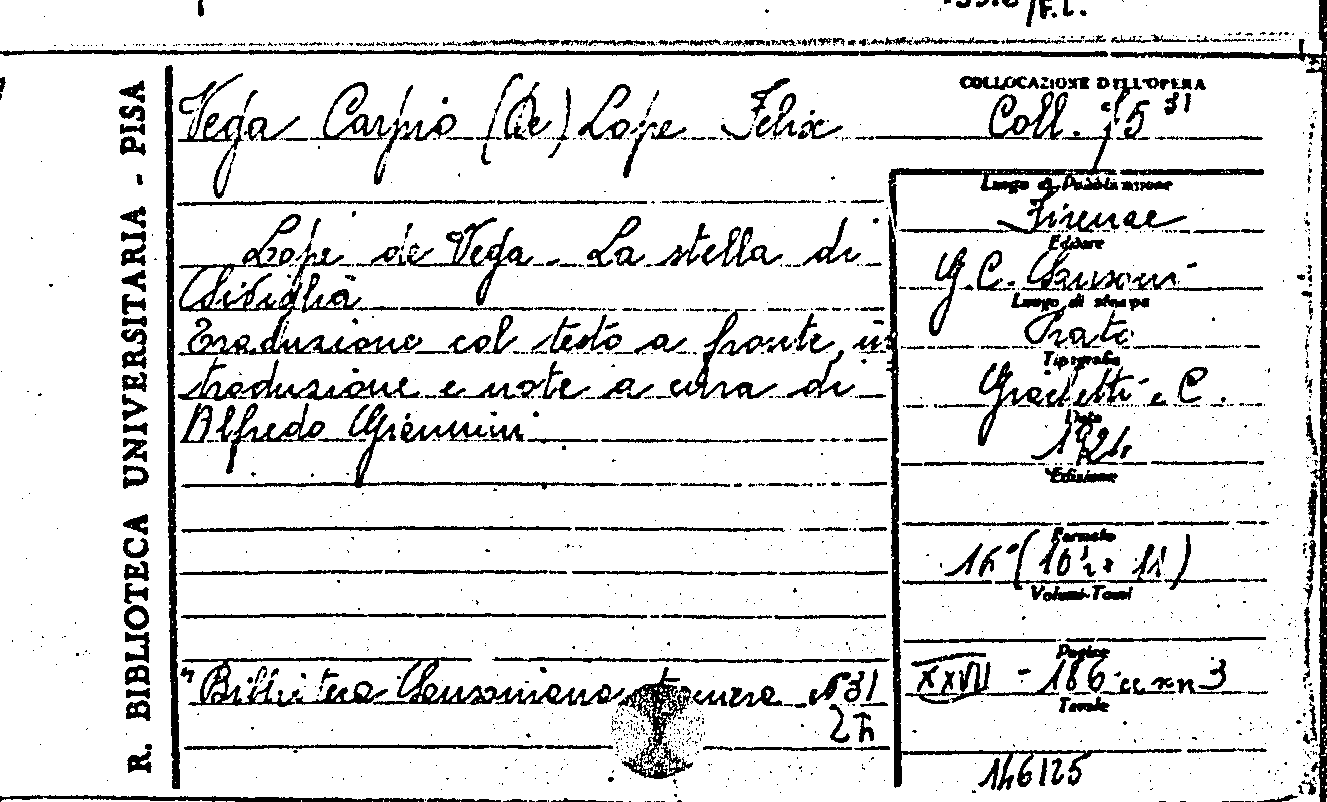 /F.L.
R. BIBLIOTECA UNIVERSITARIA - PISA
Vega Carpio (De) Lope Felix
COLLOCAZIONE DELL'OPERA
Coll. f 5 31
Lope de Vega - La stella di
Siviglia
Traduzione col testo a fronte, in
troduzione e note a cura di
Alfredo Giannini
"Biblioteca Sansoniana straniera N 31
Luogo di Pubblicazione
Firenze
Editore
G. C. Sansoni
Luogo di stampa
Prato
Tipografia
Giachetti e C.
Data
1924
Edizione
Formato
Volumi-Tomi
Pagine
XXVII - 186 cc nn 3
Tavole
146125